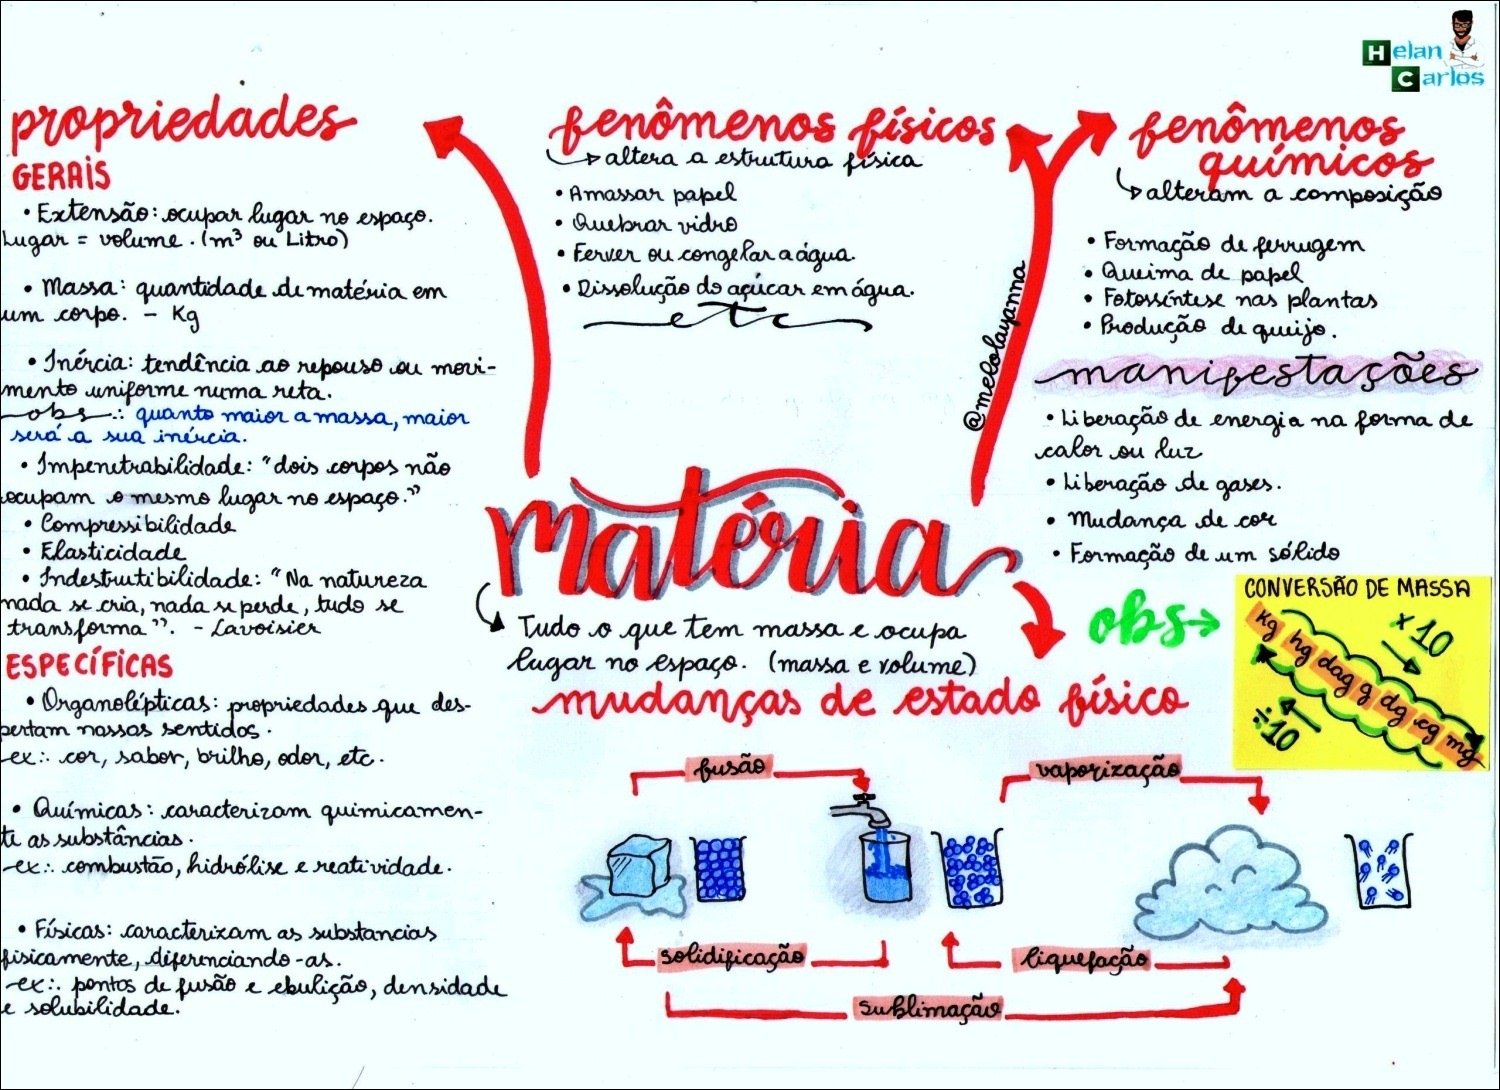 Helan
Carlos
propriedades
GERAIS
• Extensão: ocupar lugar no espaço.
Lugar = volume. (m³ ou Litro)
• Massa: quantidade de matéria em
um corpo. - Kg
• Inércia: tendência ao repouso ou movi-
mento uniforme numa reta.
obs.: quanto maior a massa, maior
será a sua inércia.
• Impenetrabilidade: "dois corpos não
ocupam o mesmo lugar no espaço."
• Compressibilidade
• Elasticidade
• Indestrutibilidade: "Na natureza
nada se cria, nada se perde, tudo se
transforma". - Lavoisier
ESPECÍFICAS
• Organolépticas: propriedades que des-
pertam nossos sentidos.
ex.: cor, sabor, brilho, odor, etc.
• Químicas: caracterizam quimicamen-
te as substâncias.
ex.: combustão, hidrólise e reatividade.
• Físicas: caracterizam as substancias
fisicamente, diferenciando-as.
-ex:. pontos de fusão e ebulição, densidade
e solubilidade.
fenômenos físicos
altera a estrutura física
• Amassar papel
• Quebrar vidro
• Ferver ou congelar a água.
• Dissolução do açúcar em água.
etc
@melolayanna
fenômenos
químicos
alteram a composição
• Formação de ferrugem
• Queima de papel
• Fotossíntese nas plantas
• Produção de queijo.
manifestações
• Liberação de energia na forma de
calor ou luz
• Liberação de gases.
• Mudança de cor
• Formação de um sólido
matéria
Tudo o que tem massa e ocupa
lugar no espaço. (massa e volume)
obs
CONVERSÃO DE MASSA
x10
kg hg dag g dg cg mg
÷10
mudanças de estado físico
fusão
vaporização
solidificação
liquefação
sublimação